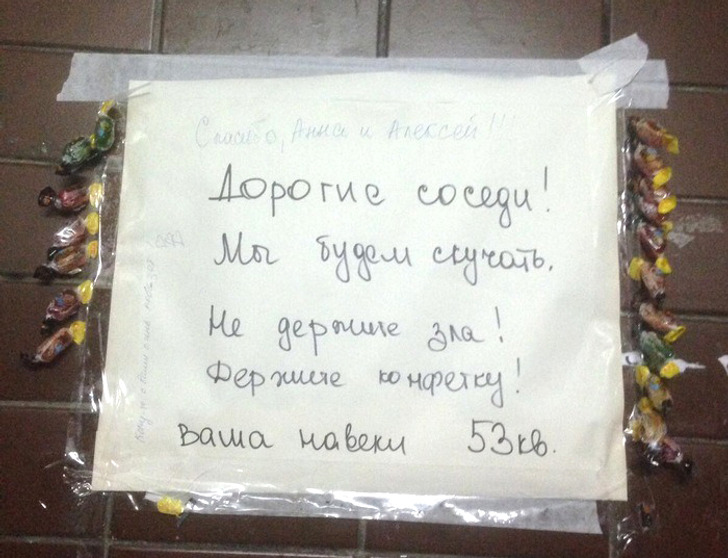 Спасибо, Анна и Алексей!!!
Дорогие соседи!
Мы будем скучать.
Не держите зла!
Держите конфетку!
ваша навеки 53кв.